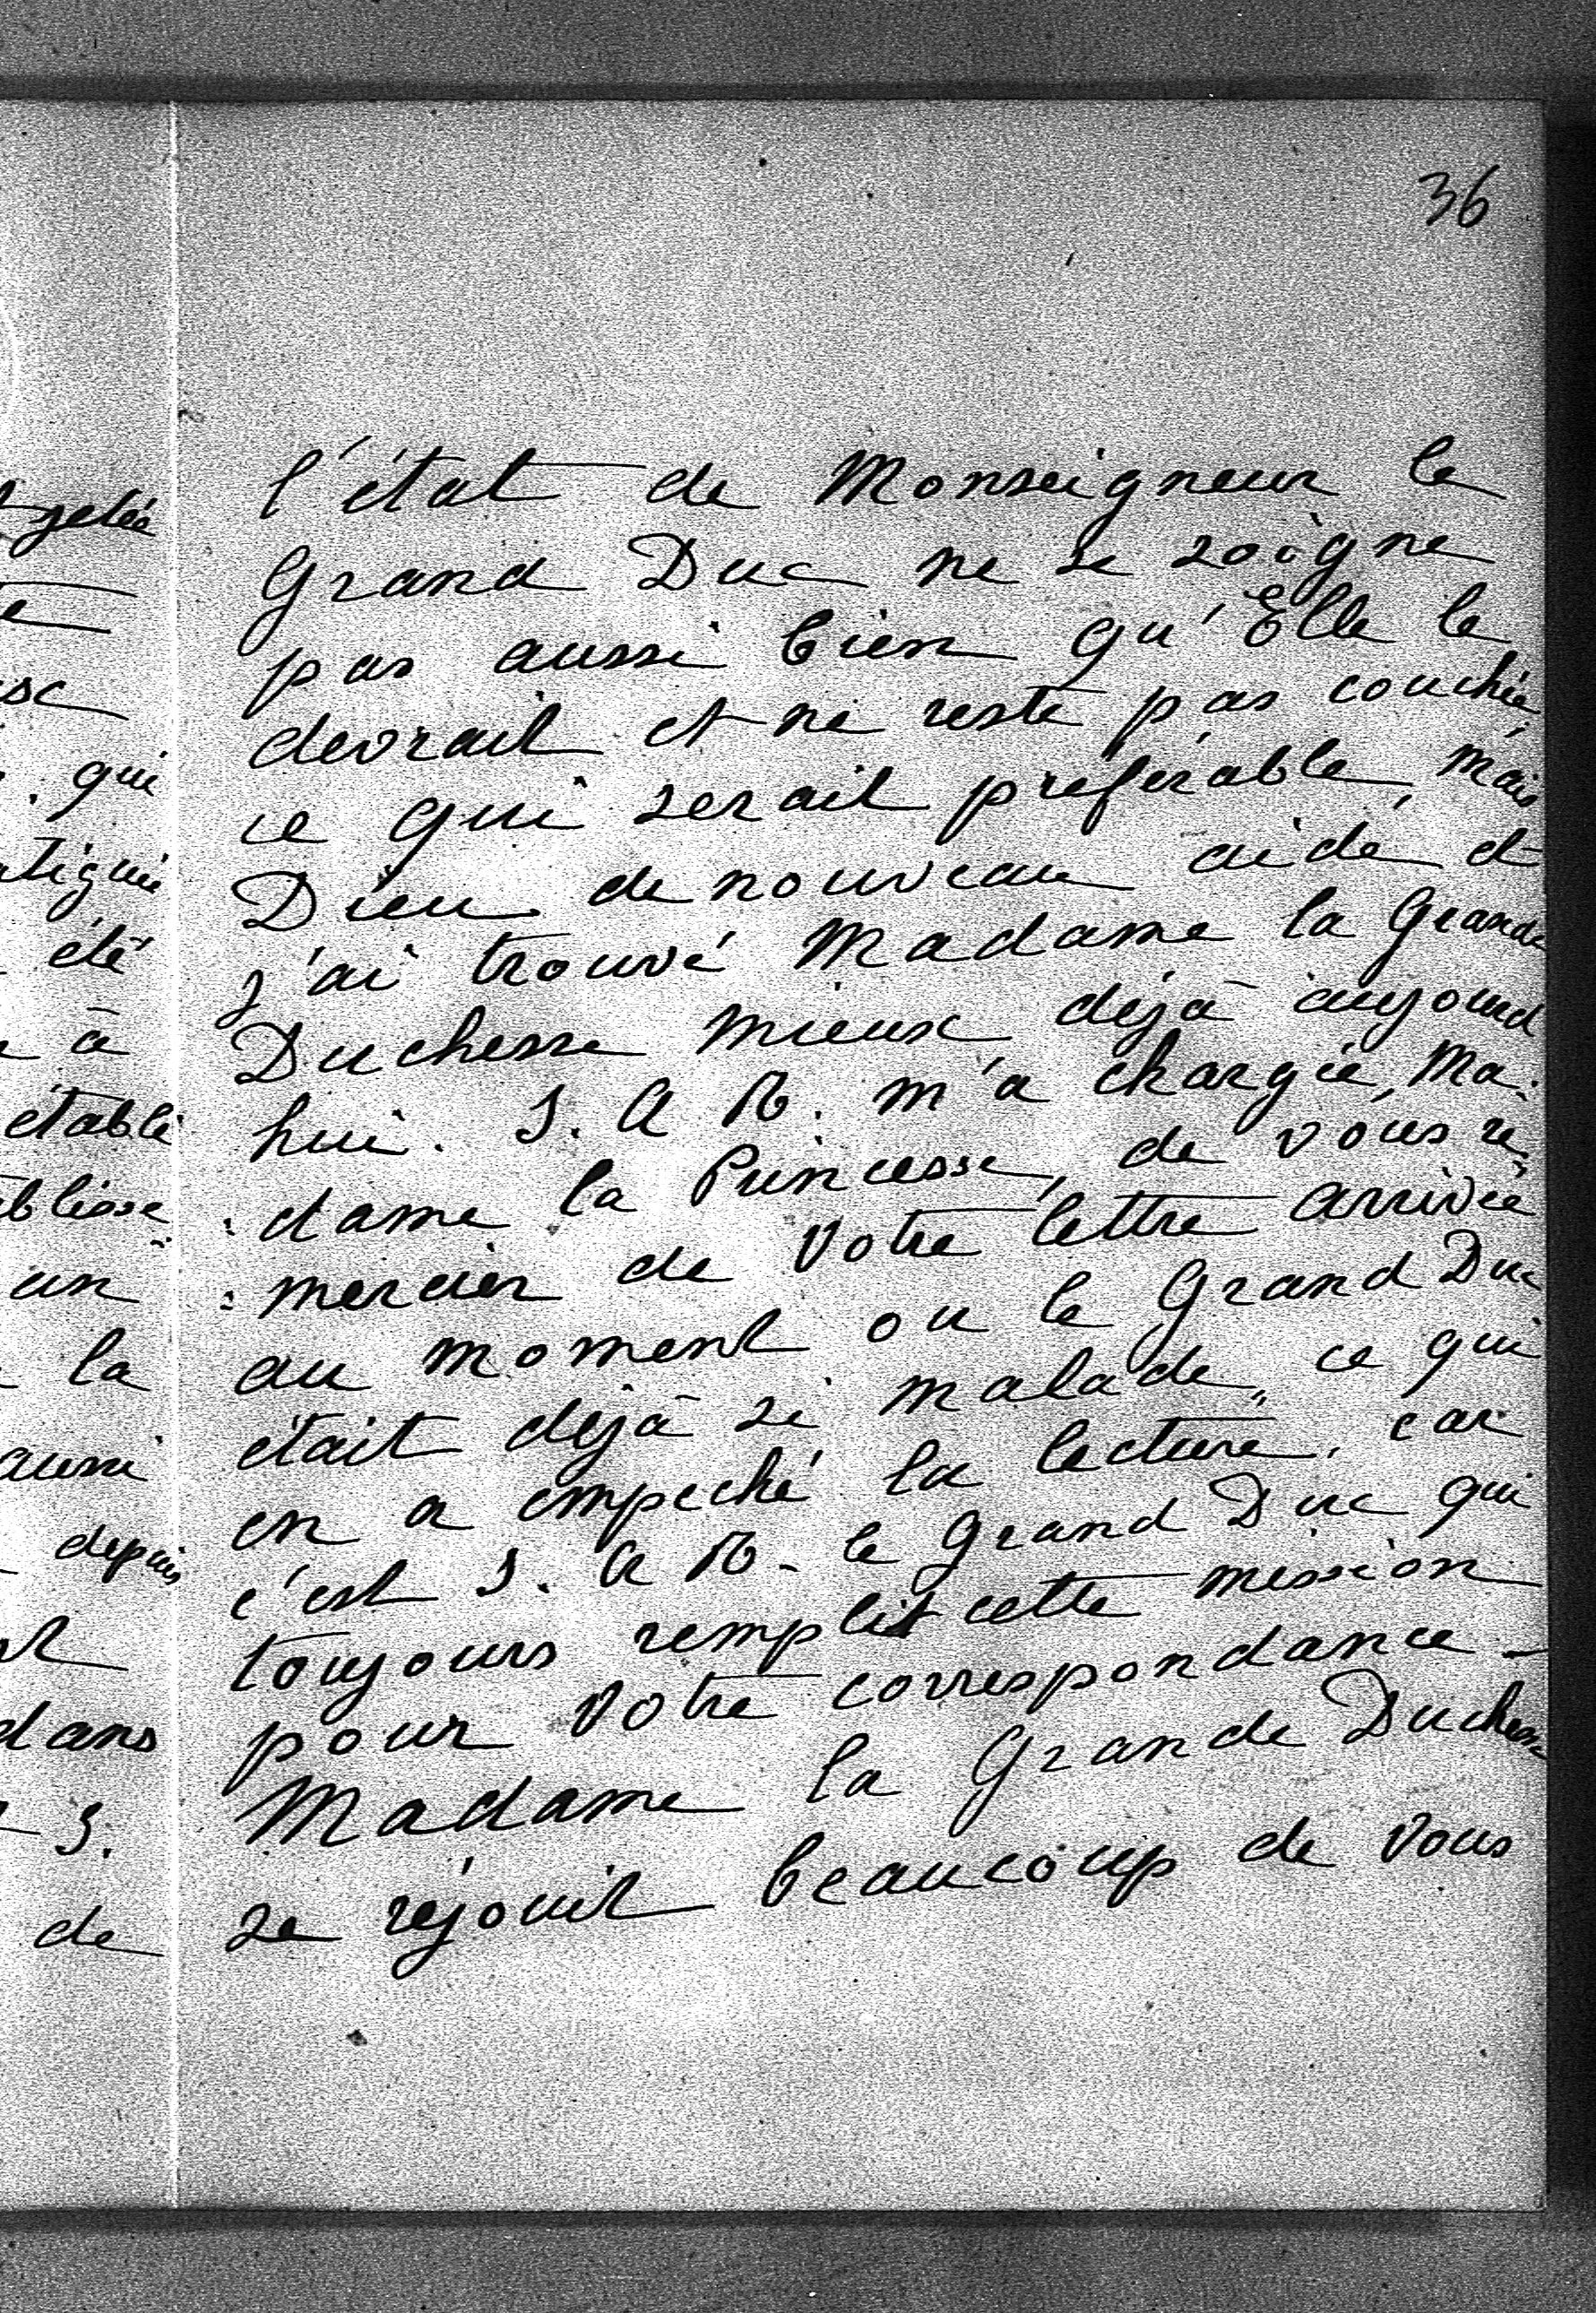 36
l'état de Monseigneur le
Grand Duc ne se soigne
pas aussi bien qu'Elle le
devrait et ne reste pas couchée
ce qui serait préférable, mais
Dieu de nouveau aide et
j'ai trouvé Madame la Grande
Duchesse mieux déjà aujourd
hui. S. A R. m'a chargée, Ma-
:dame la Princesse, de vous re
:mercier de Votre lettre arrivée
au moment ou le Grand Duc
était déjà si malade, ce qui
en a empeché la lecture, car
c'est S. A R. le Grand Duc qui
toujours remplit cette mission
pour Votre correspondance -
Madame la Grande Duchesse
se réjouit beaucoup de Vous
qui
été
à
établi
un
la
aussi
depuis
dans
S.
de